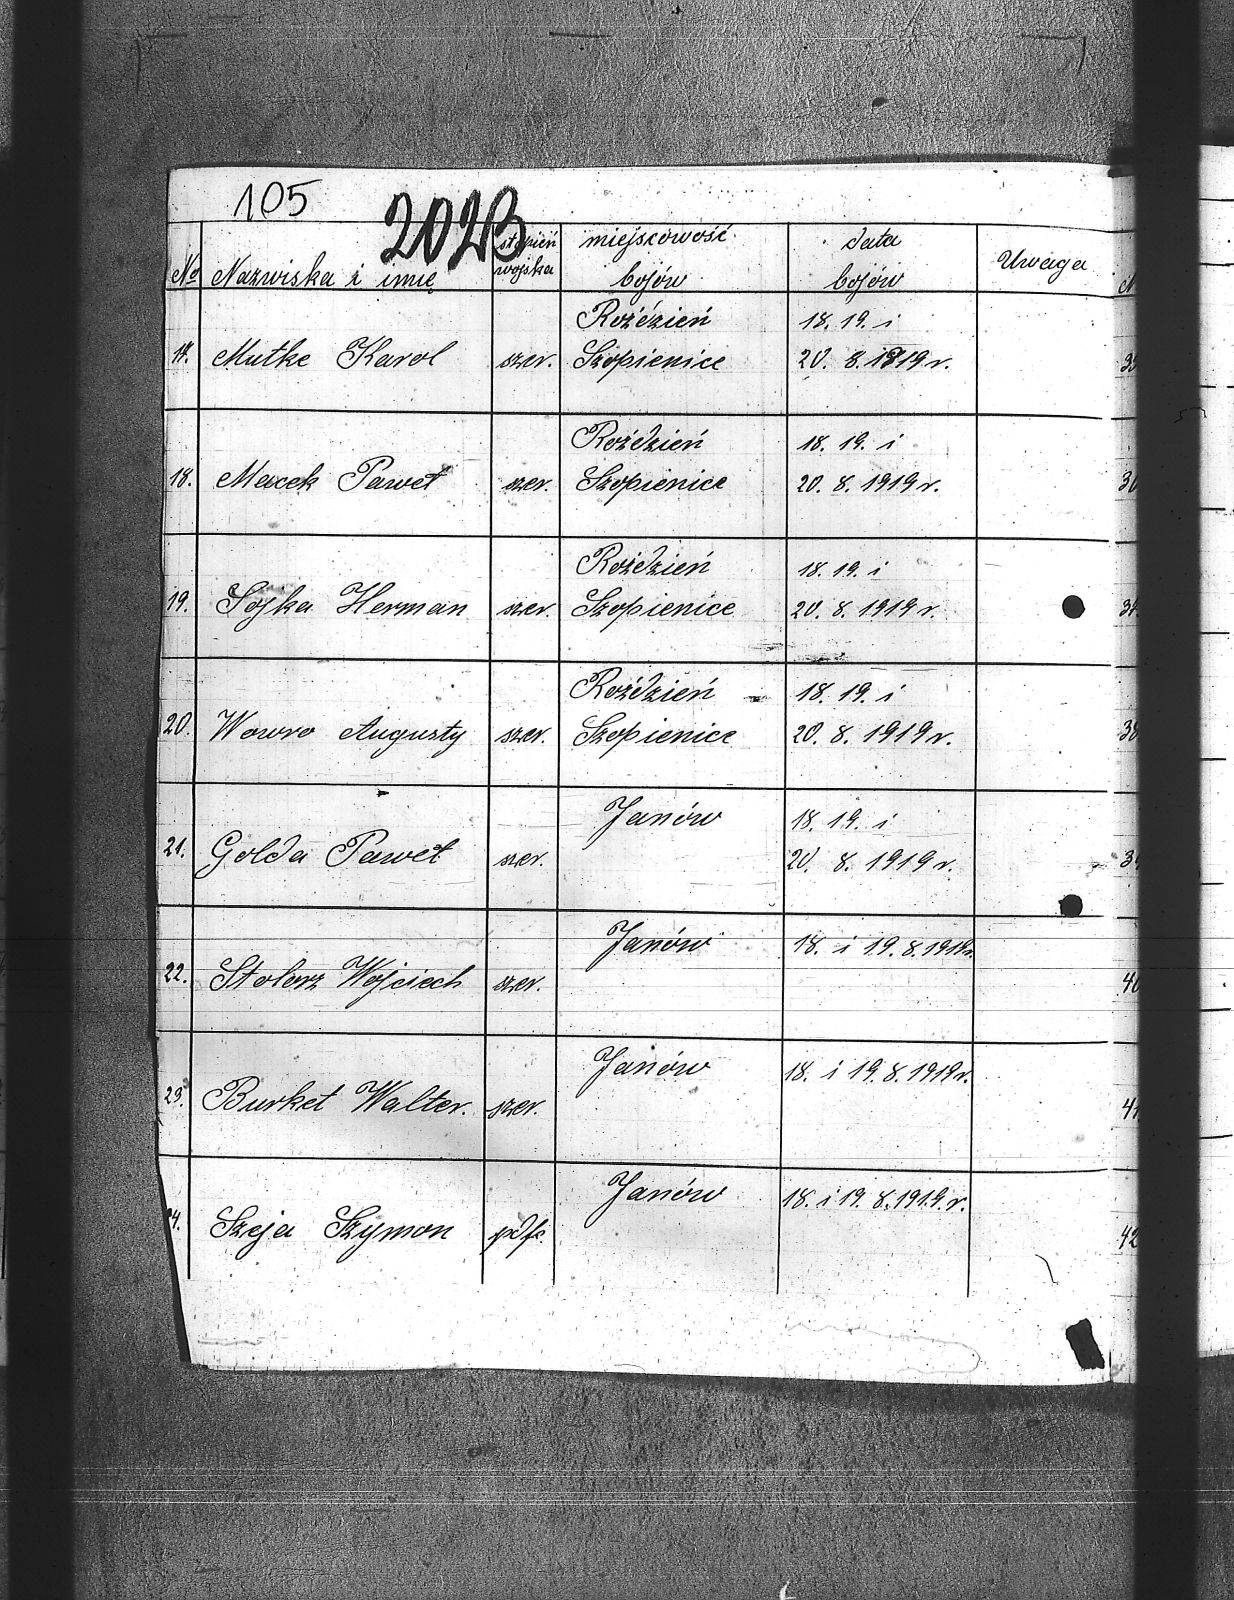 105
2023
№ Nazwiska i imię stopień wojska miejscowość bojów data bojów Uwaga
Roździeń 18. 19. i
17. Mutke Karol szer. Szopienice 20. 8. 1919 r.
Roździeń 18. 19. i
18. Macek Paweł szer. Szopienice 20. 8. 1919 r.
Roździeń 18. 19. i
19. Sojka Herman szer. Szopienice 20. 8. 1919 r.
Roździeń 18. 19. i
20. Wowro Augusty szer. Szopienice 20. 8. 1919 r.
Janów 18. 19. i
21. Golda Paweł szer. 20. 8. 1919 r.
Janów 18. i 19. 8. 1919 r.
22. Stolorz Wojciech szer.
Janów 18. i 19. 8. 1919 r.
23. Burket Walter. szer.
Janów 18. i 19. 8. 1919. r.
4. Szeja Szymon pdfr.
40
41
42